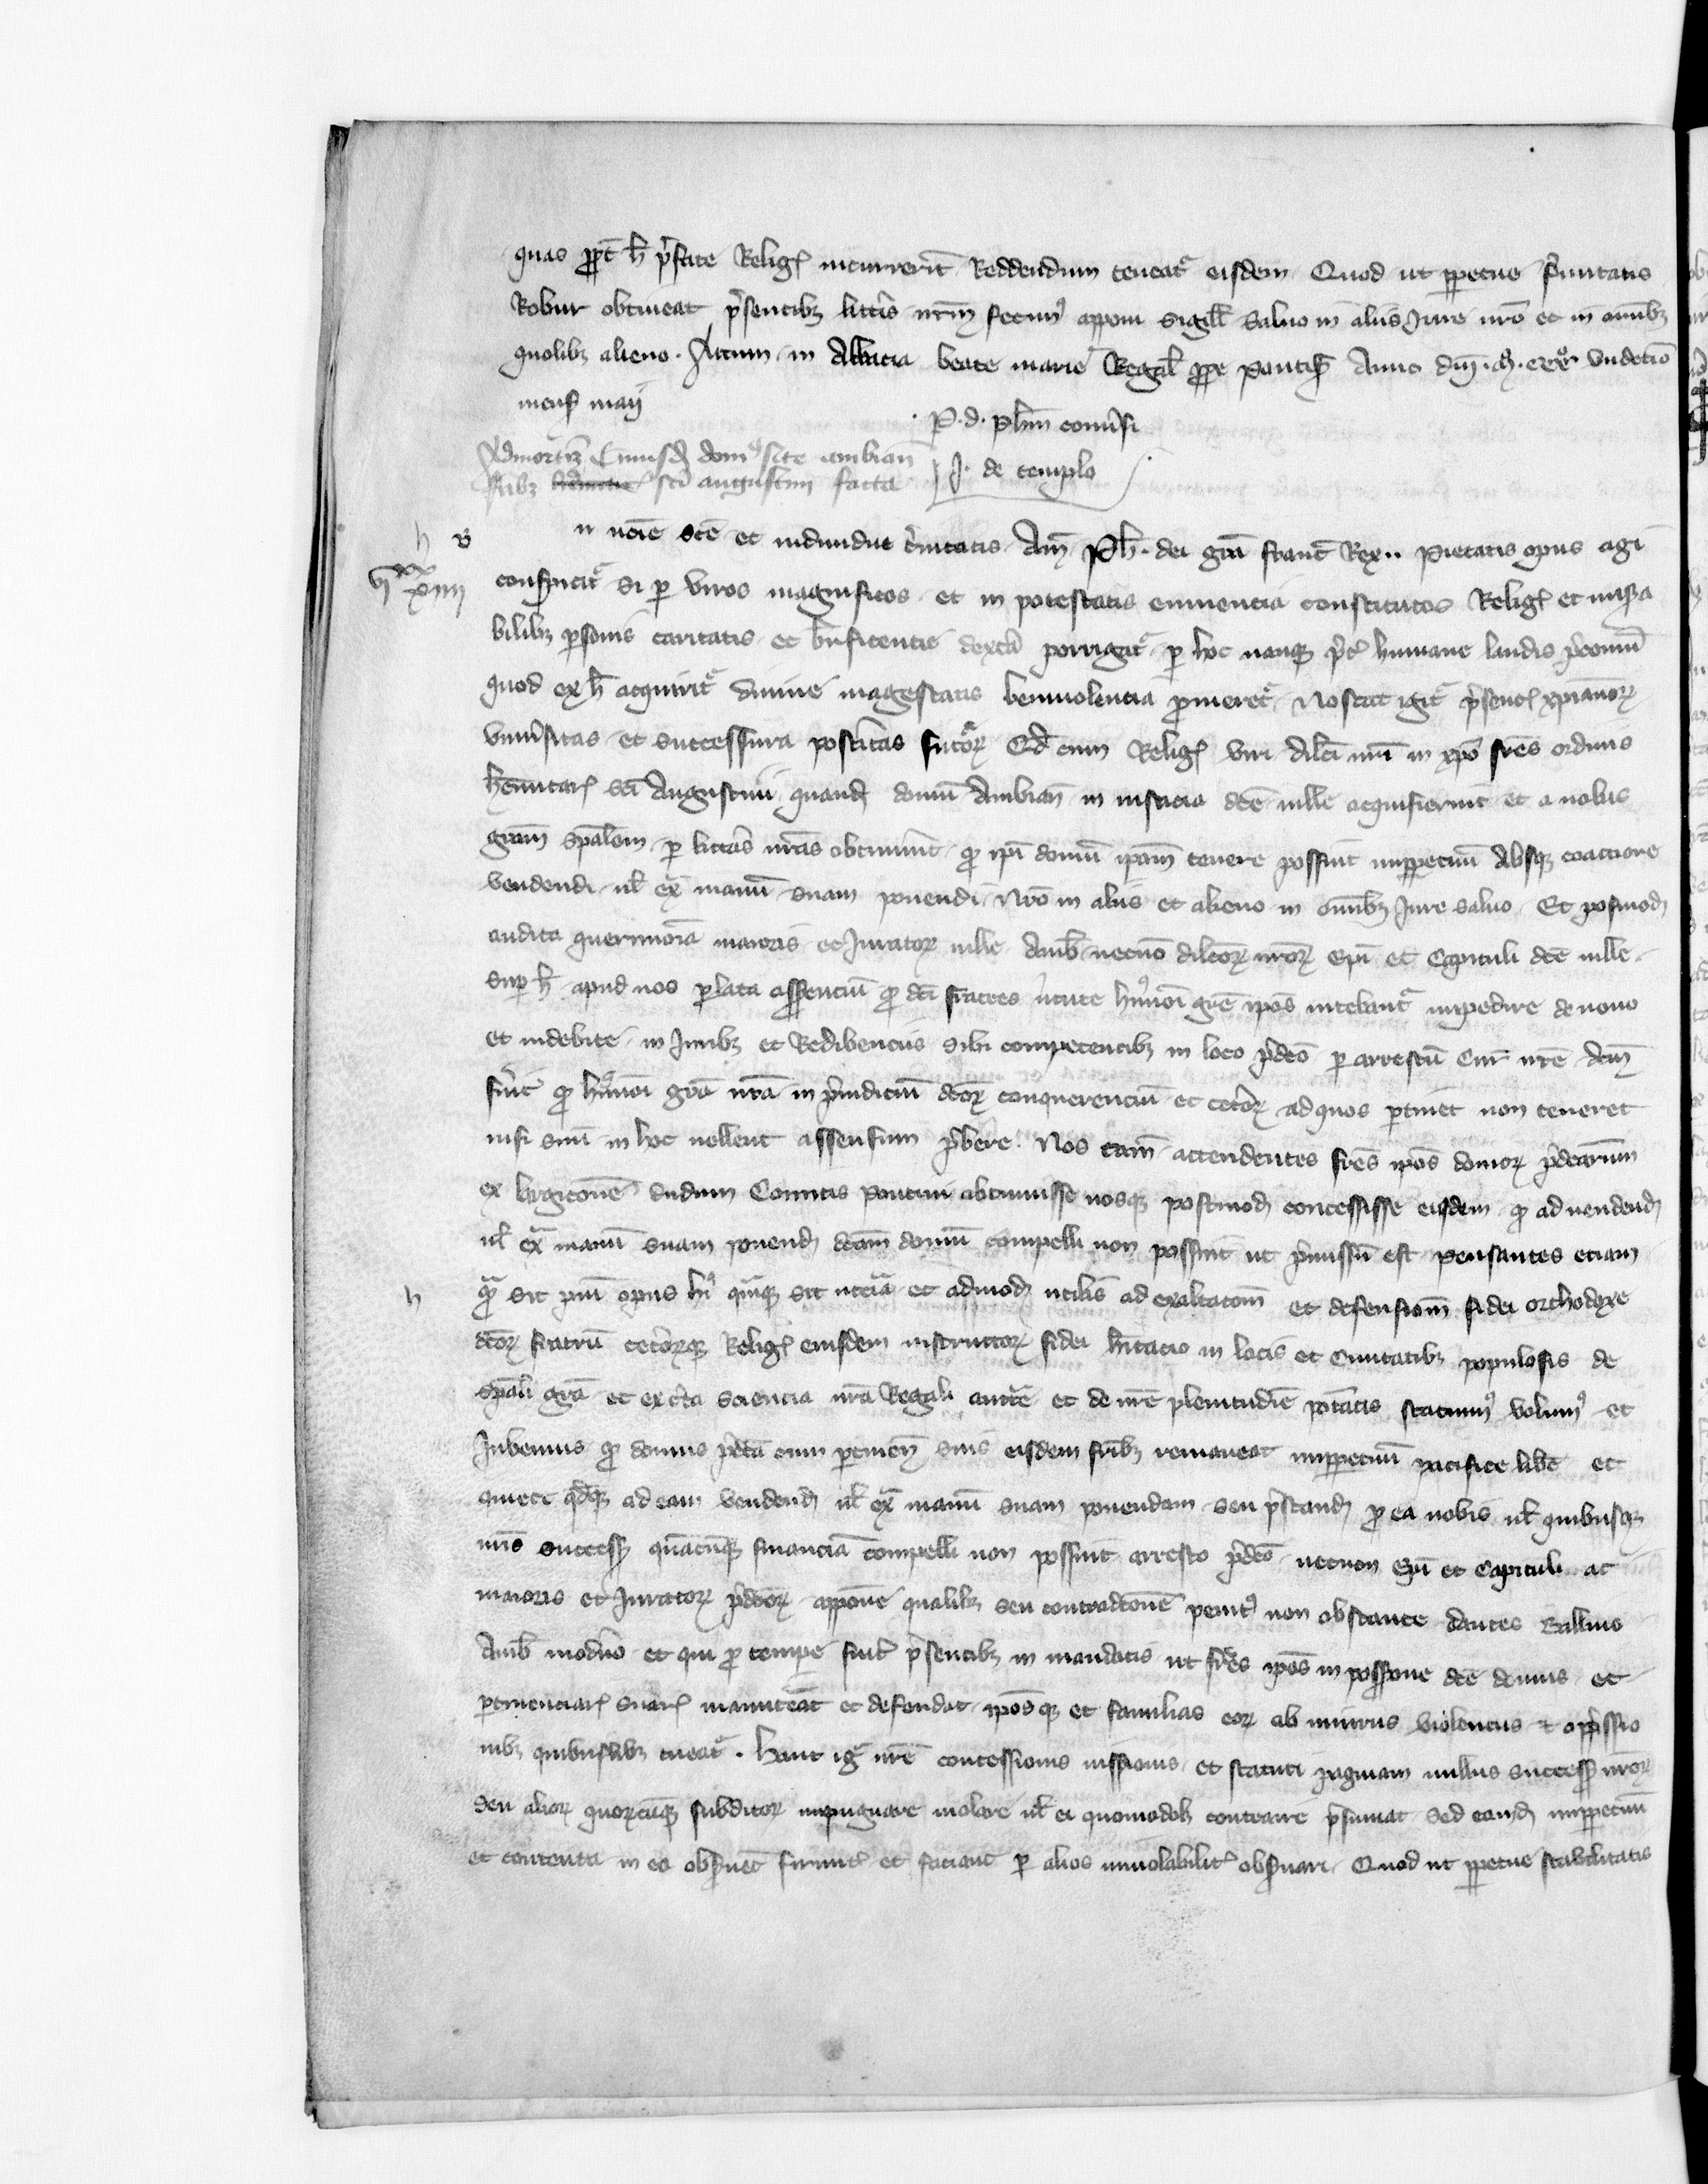 quas ꝓpt̾ h̄ p̾fate Relig̾ incurrerīt Reddendum teneat᷑ eisdem. Quod ut ꝑpetue firmitatis
Robur obtineat p̾sentib; litt̾is nr̄m fecimꝰ apponi sigill̄ saluo in aliis Jure nr̄o et in om̄ib;
quolib; alieno. Actum in Abbatia beate marie Regal̄ ꝓpe Pontis̾ Anno dn̄i. mͦ. cccͦ. vndecīo
mens̾ maij
. P. d. Ph̄m conu̾si
J. de templo
Admortiz̾ Cuiusd̄ domꝰ site ambian̄
fr̄ib; sc̄i augustini facta
n no̾ie sc̄e et indiuidue t̾nitatis Am̄ Ph̄. dei gr̄a franc̄ Rex.. Pietatis opus agi
h
vi xx xiiii
conspicit᷑ si ꝑ viros magnificos et in potestatis eminentia constitutos Relig̾ et mis̾a
bilib; ꝑsonis caritatis et bn̄ficentie dext̾a porrigat᷑ ꝑ hoc nanq; p̾t̾ humane laudis p̾coniū
quod ex h̄ acquirit᷑ diuine magestatis beniuolencia ꝓmeret᷑ Noscat igit᷑ p̾senc̾ xp̄ianoꝝ
vniu̾sitas et successura post̾itas futoꝝ Qd̄ cum Relig̾ viri dilc̄i nr̄i in xp̄o fr̄es ordinis
h̾emitaꝝ sc̄i Augustini quand̄ domū Ambian̄ in iusticia dc̄e uille acquisierint et a nobis
gr̄am sp̄alem ꝑ litt̾as nr̄as obtinu̾int ꝙ ip̄i domū ip̄am tenere possint inꝑpetuū absq; coactione
vendendi ul̄ ext̾ manū suam ponendi Nr̄o in aliis et alieno in om̄ib; Jure saluo. Et posmod̄
audita querimo̾ia maioris et Juratoꝝ uille Amb̄ necnō dilc̄oꝝ nr̄oꝝ Ep̄i et Capituli dc̄e uille
sup̾ h̄ apud nos ꝑlata asserenciū ꝙ dc̄i fratres ṽtute huiꝰmōi gr̄e ip̄os nitebant᷑ impedire de nouo
et indebite in Juribꝫ et Redibenciis sibi competentib; in loco p̾dc̄o ꝑ arrestū Cur̾ nr̄e dc̄m
fu̾it ꝙ huiꝰmōi gr̄a nr̄a in p̾iudiciū dc̄oꝝ conquerenciū et cet̾oꝝ ad quos ꝑtinet non teneret
nisi suū in hoc uellent assensum p̾bere. Nos tam̄ attendentes fr̄es ip̄os domoꝝ p̾dc̄arum
ex largic̄one dudum Comitis Pontiui obtinuisse nosq; postmod̄ concessisse eisdem ꝙ ad uendend̄
ul̄ ext̾ manū suam ponend̄ dc̄am domū compelli non possint ut p̾missū est pensantes etiam
h
ꝙ̾ sit piū opus
 et admod̄ utilis ad exaltac̄om et defensiom̄ fidei orthodoxe
dc̄oꝝ fratrū cet̾oꝝq; Relig̾ eiusdem instructoꝝ fidei h̄itacio in locis et Ciuitatib; populosis de
sp̄ali gr̄a et ex c̾ta sciencia nr̄a Regali auctē et de nr̄e plenitudīe potātis statuimꝰ volumꝰ et
Jubemus ꝙ domus p̾dc̄a cum ꝑtinen̄ suis eisdem fr̄ib; remaneat inꝑpetuū pacifice lib̾e et
quiete 
 ad eam vendend̄ ul̄ ext̾ manū suam ponendam seu p̾stand̄ ꝓ ea nobis ul̄ quibuscq;
nr̄is success̾ quacūq; financiā compelli non possint arresto p̾dc̄o necnon Ep̄i et Capituli ac
maioris et Juratoꝝ p̾dc̄oꝝ oppōne qualib; seu contradc̄one penitꝰ non obstante dantes Balliuo
Amb̄ mod̾no et qui ꝓ tempe fu̾it p̾sentib; in mandatis ut fr̄es ip̄os in poss̄ione dc̄e domus et
ꝑtinenciaꝝ suaꝝ manuteneat et defendat ip̄osq; et familias eoꝝ ab iniuriis violenciis et opp̾ssio
nib; quibuslib; tueat᷑. hanc ig̾ nr̄e concessionis iussionis et statuti paginam nullus success̾ nr̄oꝝ
seu alioꝝ quoꝝcūq; subditoꝝ impugnare uiolare ul̄ ei quomodolib; contraire p̾sumat sed eamd̄ inꝑpetuū
et contenta in ea obs̾uent firmit̾ et faciant ꝑ alios inuiolabilit̾ obs̾uari. Quod ut ꝑpetue stabilitatis